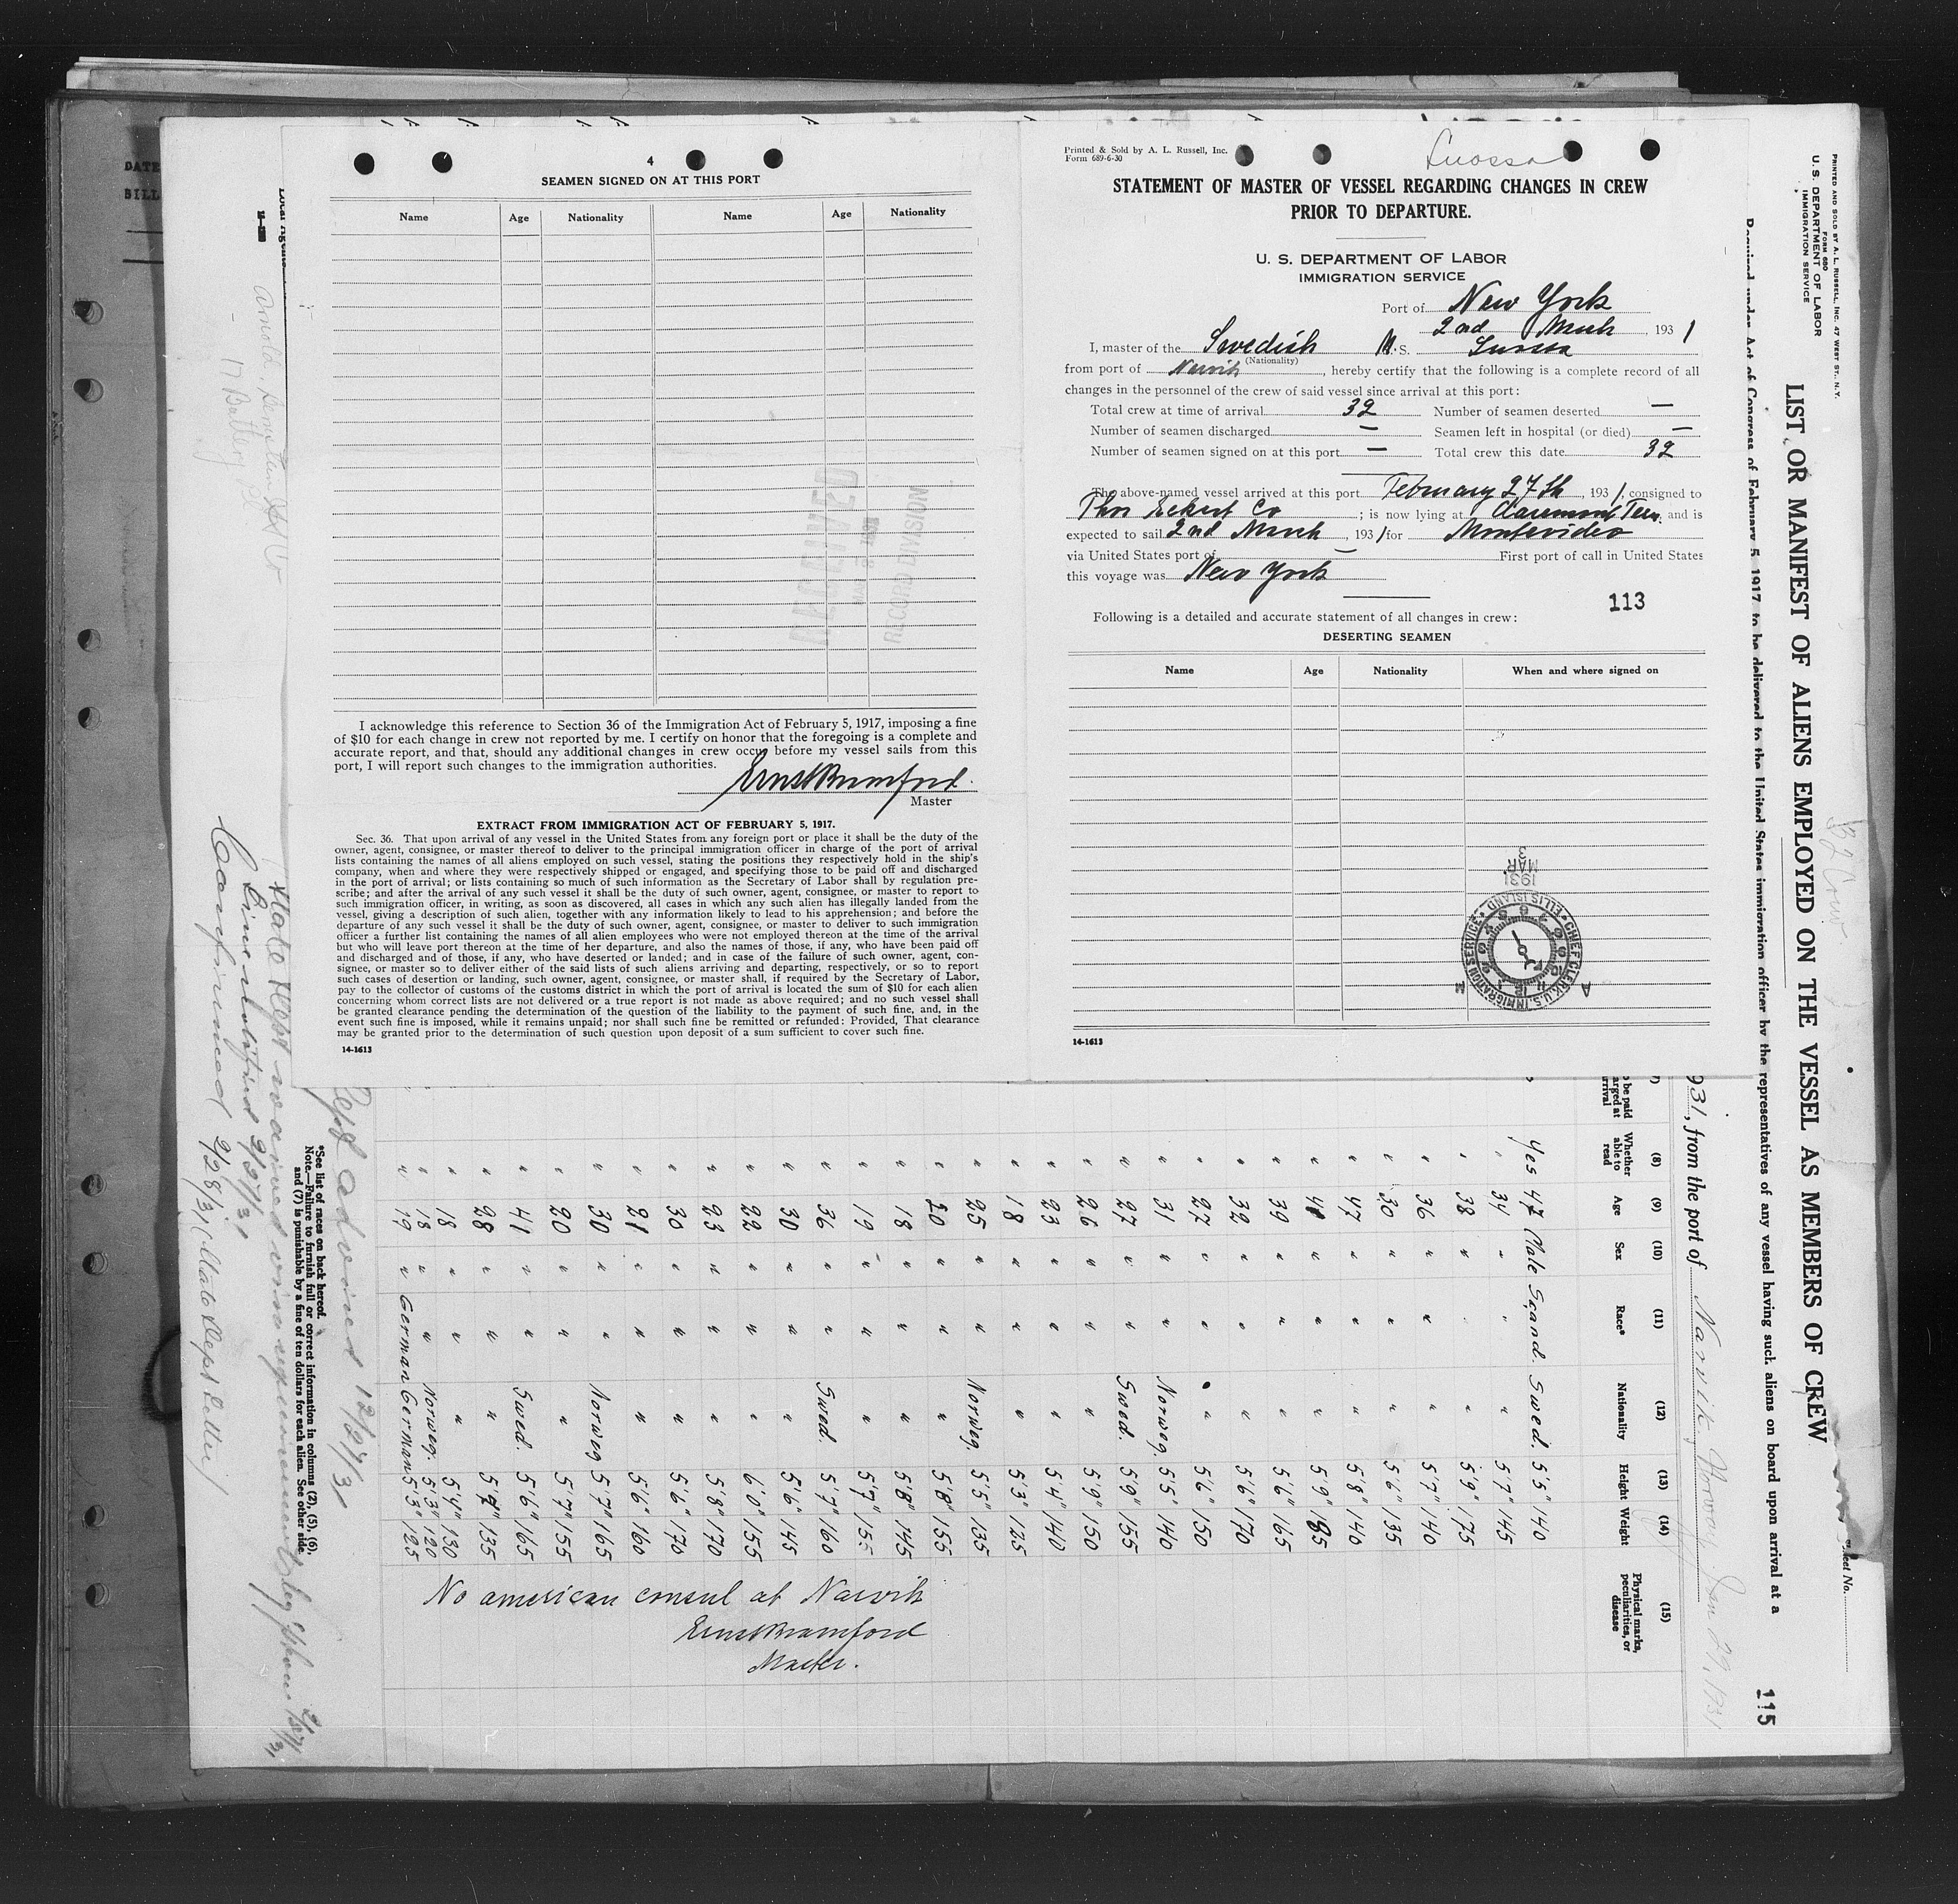 4
SEAMEN SIGNED ON AT THIS PORT
Name Age Nationality Name Age Nationality
RECORD DIVISION
I acknowledge this reference to Section 36 of the Immigration Act of February 5, 1917, imposing a fine
of $10 for each change in crew not reported by me. I certify on honor that the foregoing is a complete and
accurate report, and that, should any additional changes in crew occur before my vessel sails from this
port, I will report such changes to the immigration authorities.
Ernst Bramford
Master
EXTRACT FROM IMMIGRATION ACT OF FEBRUARY 5, 1917.
Sec. 36. That upon arrival of any vessel in the United States from any foreign port or place it shall be the duty of the
owner, agent, consignee, or master thereof to deliver to the principal immigration officer in charge of the port of arrival
lists containing the names of all aliens employed on such vessel, stating the positions they respectively hold in the ship's
company, when and where they were respectively shipped or engaged, and specifying those to be paid off and discharged
in the port of arrival; or lists containing so much of such information as the Secretary of Labor shall by regulation pre-
scribe; and after the arrival of any such vessel it shall be the duty of such owner, agent, consignee, or master to report to
such immigration officer, in writing, as soon as discovered, all cases in which any such alien has illegally landed from the
vessel, giving a description of such alien, together with any information likely to lead to his apprehension; and before the
departure of any such vessel it shall be the duty of such owner, agent, consignee, or master to deliver to such immigration
officer a further list containing the names of all alien employees who were not employed thereon at the time of the arrival
but who will leave port thereon at the time of her departure, and also the names of those, if any, who have been paid off
and discharged and of those, if any, who have deserted or landed; and in case of the failure of such owner, agent, con-
signee, or master so to deliver either of the said lists of such aliens arriving and departing, respectively, or so to report
such cases of desertion or landing, such owner, agent, consignee, or master shall, if required by the Secretary of Labor,
pay to the collector of customs of the customs district in which the port of arrival is located the sum of $10 for each alien
concerning whom correct lists are not delivered or a true report is not made as above required; and no such vessel shall
be granted clearance pending the determination of the question of the liability to the payment of such fine, and, in the
event such fine is imposed, while it remains unpaid; nor shall such fine be remitted or refunded: Provided, That clearance
may be granted prior to the determination of such question upon deposit of a sum sufficient to cover such fine.
14-1613
Printed & Sold by A. L. Russell, Inc.
Form 689-6-30
Luossa
STATEMENT OF MASTER OF VESSEL REGARDING CHANGES IN CREW
PRIOR TO DEPARTURE.
U. S. DEPARTMENT OF LABOR
IMMIGRATION SERVICE
Port of New York
2nd March, 1931
I, master of the Swedish M.S. Luossa
(Nationality)
from port of Narvik, hereby certify that the following is a complete record of all
changes in the personnel of the crew of said vessel since arrival at this port:
Total crew at time of arrival 32 Number of seamen deserted —
Number of seamen discharged — Seamen left in hospital (or died) —
Number of seamen signed on at this port — Total crew this date 32
The above-named vessel arrived at this port February 27th, 1931, consigned to
Thor Eckert Co; is now lying at Claremont Term. and is
expected to sail 2nd March, 1931 for Montevideo
via United States port of — First port of call in United States
this voyage was New York
113
Following is a detailed and accurate statement of all changes in crew:
DESERTING SEAMEN
Name Age Nationality When and where signed on
MAR 3
1931
CHIEF CLERK, U.S. IMMIGRATION SERVICE
ELLIS ISLAND
14-1613
PRINTED AND SOLD BY A. L. RUSSELL, INC. 47 WEST ST., N.Y.
FORM 680
U. S. DEPARTMENT OF LABOR
IMMIGRATION SERVICE
LIST OR MANIFEST OF ALIENS EMPLOYED ON THE VESSEL AS MEMBERS OF CREW
Sheet No.
Required under Act of Congress of February 5, 1917, to be delivered to the United States immigration officer by the representatives of any vessel having such aliens on board upon arrival at a
115
931, from the port of Narvik, Norway, Jan 29, 1931
(8) (9) (10) (11) (12) (13) (14) (15)
Whether able to read Age Sex Race* Nationality Height Weight Physical marks, peculiarities, or disease
Yes 47 Male Scand. Swed. 5'5" 140
" 34 " " " 5'7" 145
" 38 " " " 5'9" 175
" 36 " " " 5'7" 140
" 30 " " " 5'6" 135
" 47 " " " 5'8" 140
" 41 " " " 5'9" 185
" 39 " " " 5'6" 165
" 32 " " " 5'6" 170
" 27 " " " 5'6" 150
" 31 " " Norweg. 5'5" 140
" 27 " " Swed. 5'9" 155
" 26 " " " 5'9" 150
" 23 " " " 5'4" 140
" 18 " " " 5'3" 125
" 25 " " Norweg. 5'5" 135
" 20 " " " 5'8" 155
" 18 " " " 5'8" 145
" 19 " " " 5'7" 155
" 36 " " Swed. 5'7" 160
" 30 " " " 5'6" 145
" 22 " " " 6'0" 155
" 23 " " " 5'8" 170
" 30 " " " 5'6" 170
" 21 " " " 5'6" 160
" 30 " " Norweg 5'7" 165
" 20 " " " 5'7" 155
" 41 " " Swed. 5'6" 165
" 28 " " " 5'7" 135
" 18 " " " 5'4" 130
" 18 " " Norweg. 5'3" 120
" 19 " German German 5'3" 125
No american consul at Narvik
Ernst Bramford
Master.
*See list of races on back hereof.
Note.—Failure to furnish full or correct information in columns (2), (5), (6),
and (7) is punishable by a fine of ten dollars for each alien. See other side.
State Dept waived visa requirement by phone 2/27/31
Line notified 2/27/31
Confirmed 2/28/31 (State Dept letter)
17 Battery Pl
DATE